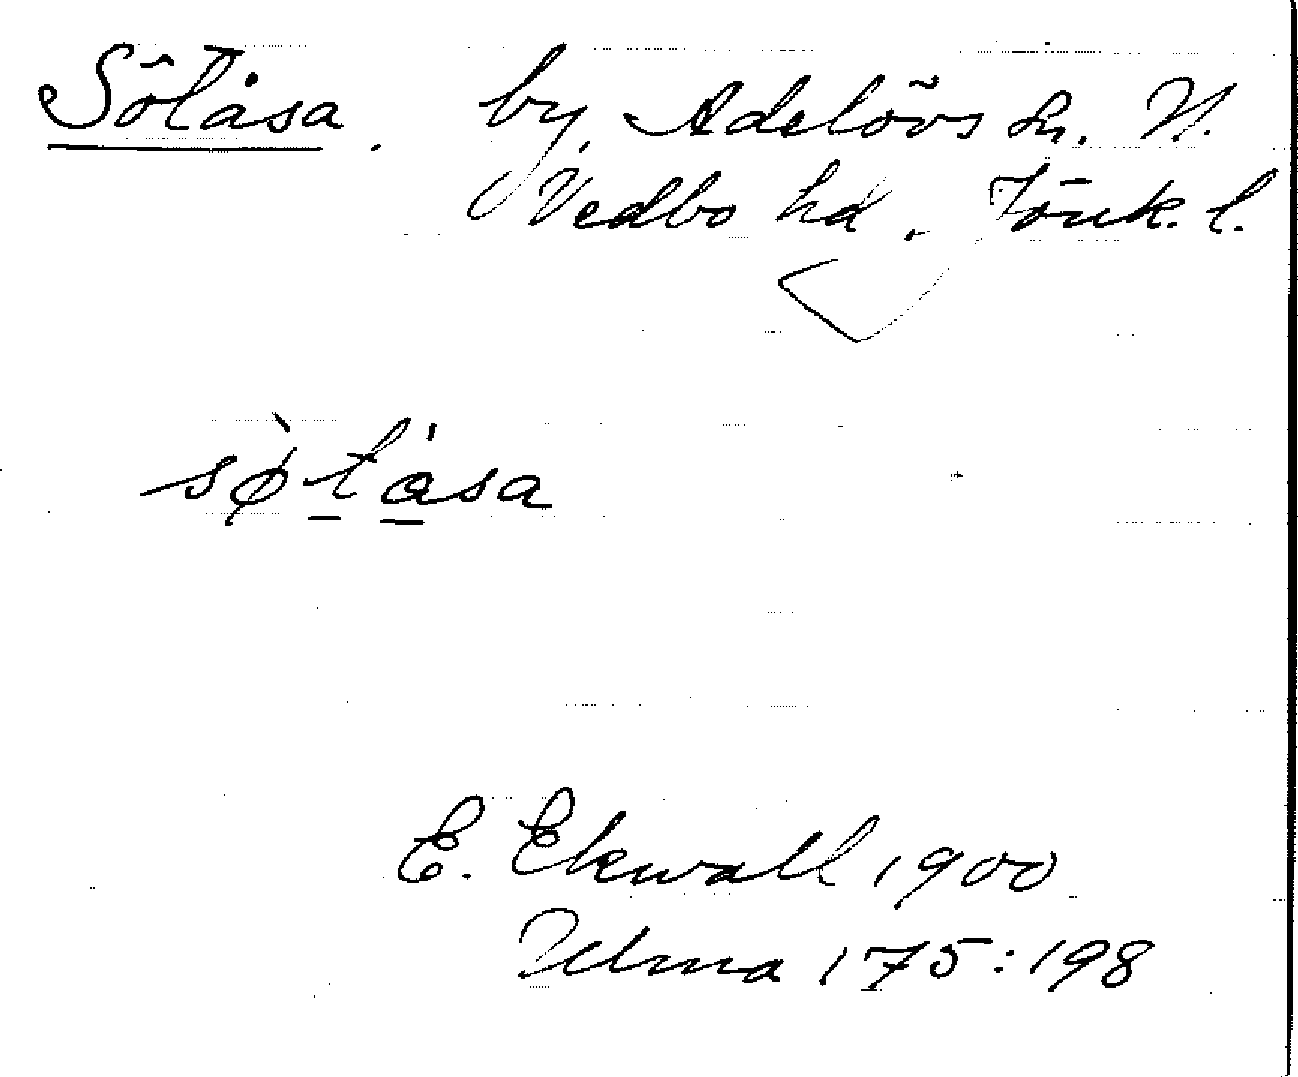 Sötåsa. by, Adelövs sn. N.
Vedbo hd. Jönk. l.
sø̀ta̍sa
E. Ekwall 1900
Ulma 175:198